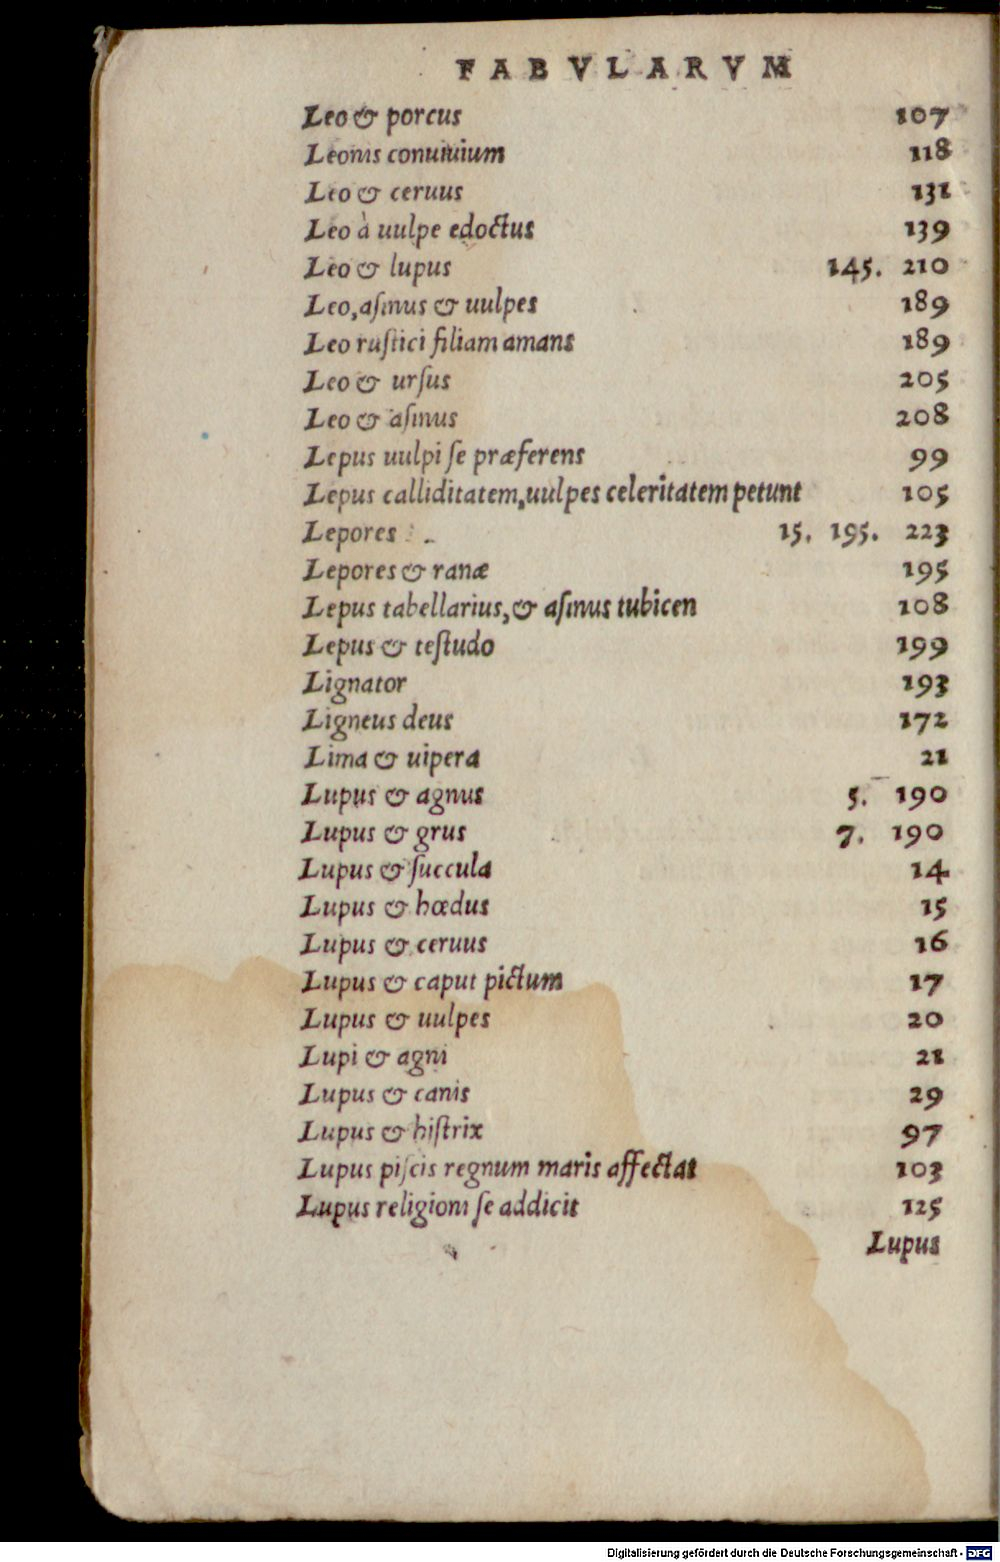 FABVLARVM
Leo & porcus 107
Leonis conuiuium 118
Leo & ceruus 131
Leo à uulpe edoctus 139
Leo & lupus 145. 210
Leo, aſinus & uulpes 189
Leo ruſtici filiam amans 189
Leo & urſus 205
Leo & aſinus 208
Lepus uulpi ſe præferens 99
Lepus calliditatem, uulpes celeritatem petunt 105
Lepores 15. 195. 223
Lepores & ranæ 195
Lepus tabellarius, & aſinus tubicen 108
Lepus & teſtudo 199
Lignator 193
Ligneus deus 172
Lima & uipera 21
Lupus & agnus 5. 190
Lupus & grus 7. 190
Lupus & ſuccula 14
Lupus & hœdus 15
Lupus & ceruus 16
Lupus & caput pictum 17
Lupus & uulpes 20
Lupi & agni 21
Lupus & canis 29
Lupus & hiſtrix 97
Lupus piſcis regnum maris affectat 103
Lupus religioni ſe addicit 125
Lupus
Digitalisierung gefördert durch die Deutsche Forschungsgemeinschaft - DFG